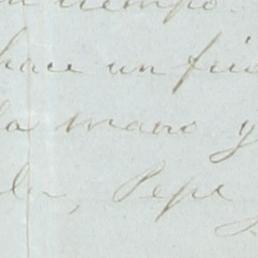 tiempo.
hace un frio
la mano y
Pepe